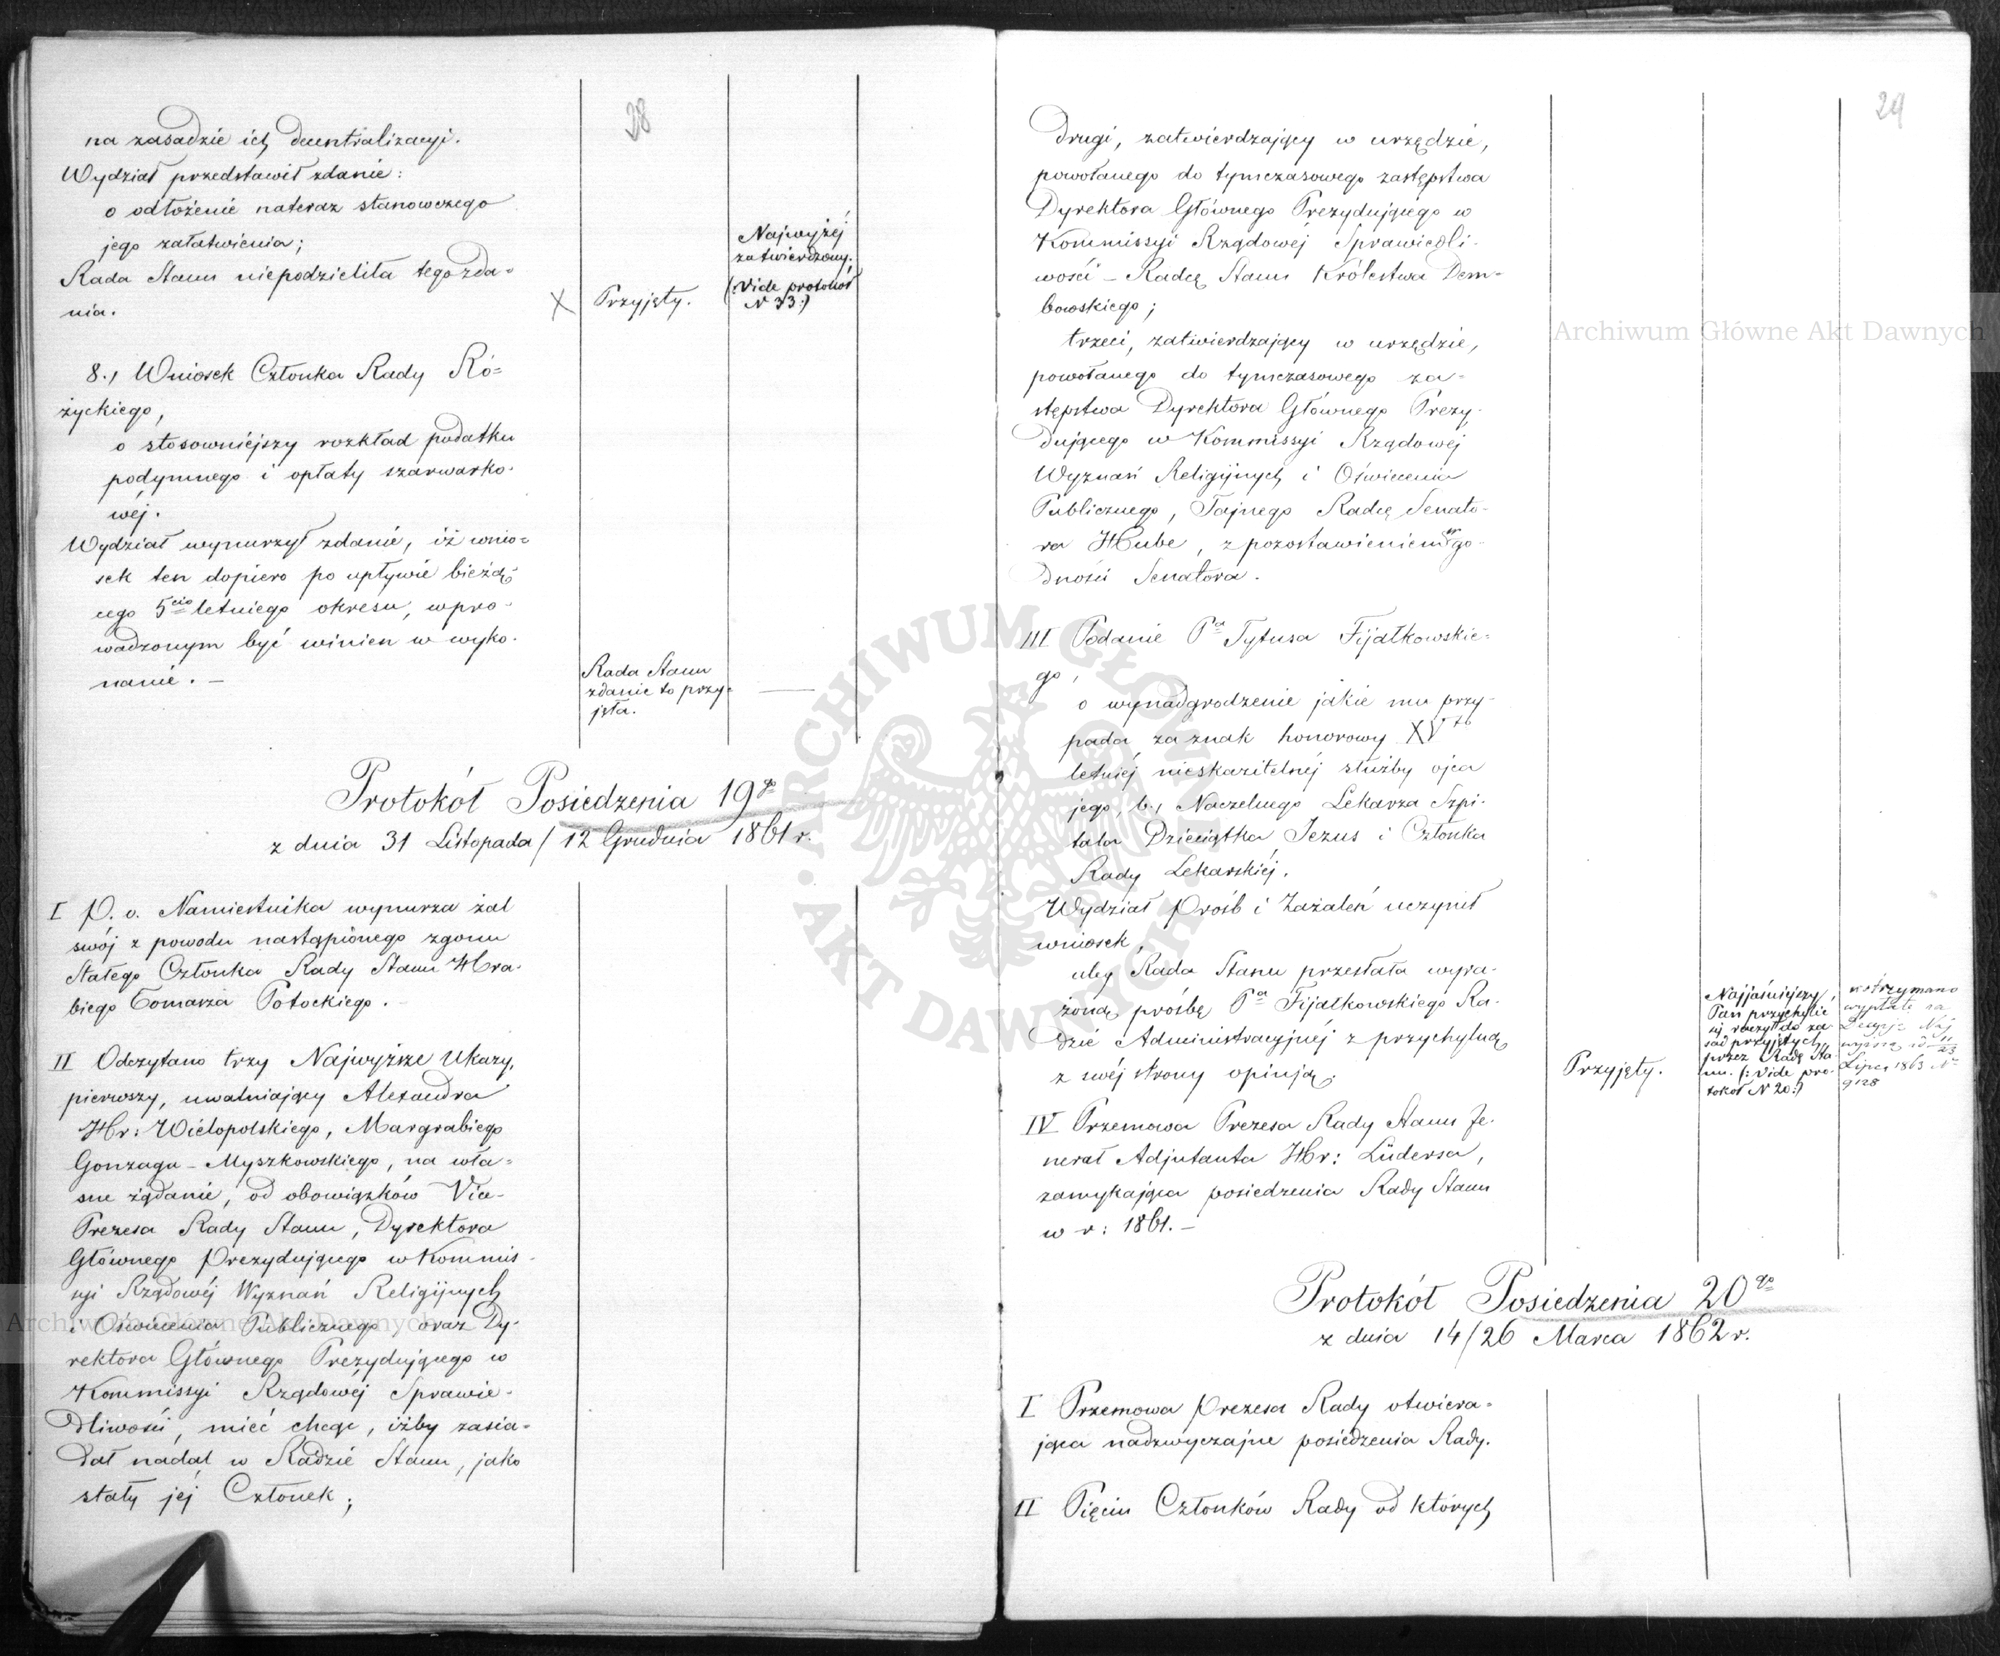 28
na zasadzie ich decentralizacyi.
Wydział przedstawił zdanie:
o odłożenie nateraz stanowczego
jego załatwienia;
Rada Stanu niepodzieliła tego zda-
nia.
X Przyjęty.
Najwyżéj
zatwierdzony.
(:Vide protokół
N 33:)
8., Wniosek Członka Rady Ró=
życkiego,
o stosowniejszy rozkład podatku
podymnego i opłaty szarwarko-
wéj.
Wydział wynurzył zdanie, iż wnio=
sek ten dopiero po upływie bieżą-
cego 5cio letniego okresu, wpro-
wadzonym być winien w wyko-
nanie. —
Rada Stanu
zdanie to przy=
jęła.
Protokół Posiedzenia 19go
z dnia 31 Listopada / 12 Grudnia 1861 r.
I P. o. Namiestnika wynurza żal
swój z powodu nastąpionego zgonu
Stałego Członka Rady Stanu Hra-
biego Tomarza Potockiego. —
II Odczytano trzy Najwyższe Ukazy,
pierwszy, uwalniający Alexandra
Hr: Wielopolskiego, Margrabiego
Gonzaga - Myszkowskiego, na wła=
sne żądanie, od obowiązków Vice-
Prezesa Rady Stanu, Dyrektora
Głównego Prezydującego w Kommis-
syi Rządowéj Wyznań Religijnych
i Oświecenia Publicznego, oraz Dy-
rektora Głównego Prezydującego w
Kommissyi Rządowéj Sprawie-
dliwości, mieć chcąc, iżby zasia=
dał nadal w Radzie Stanu, jako
stały jéj Członek;
29
drugi, zatwierdzający w urzędzie,
powołanego do tymczasowego zastępstwa
Dyrektora Głównego Prezydującego w
Kommissyi Rządowéj Sprawiedli-
wości - Radcę Stanu Królestwa Dem-
bowskiego;
trzeci, zatwierdzający w urzędzie,
powołanego do tymczasowego za=
stępstwa Dyrektora Głównego Prezy-
dującego w Kommissyi Rządowéj
Wyznań Religijnych i Oświecenia
Publicznego, Tajnego Radcę Senato-
ra Hube, z pozostawieniem w go-
dności Senatora.
III Podanie Pa Tytusa Fijałkowskie=
go,
o wynadgrodzenie jakie mu przy-
pada za znak honorowy XVto
letniéj nieskazitelnéj służby ojca
jego, b., Naczelnego Lekarza Szpi-
tala Dzieciątka Jezus i Członka
Rady Lekarskiéj.
Wydział Próśb i Zażaleń uczynił
wniosek,
aby Rada Stanu przesłała wyra-
żoną prośbę Pa Fijałkowskiego Ra-
dzie Administracyjnéj z przychylną
z swéj strony opinją.
Przyjęty.
Najjaśniejszy
Pan przychylić
się raczył do za-
sad przyjętych
przez Radę Sta-
nu. (:Vide pro-
tokół N 20:)
otrzymano
wypłatę na
Decyzję Naj
wyższą 11/23
Lipca 1863 No
9128
IV Przemowa Prezesa Rady Stanu Je-
nerał Adjutanta Hr: Lüdersa,
zamykająca posiedzenia Rady Stanu
w r: 1861. —
Protokół Posiedzenia 20go
z dnia 14/26 Marca 1862 r.
I Przemowa Prezesa Rady otwiera=
jąca nadzwyczajne posiedzenia Rady.
II Pięciu Członków Rady od których
Archiwum Główne Akt Dawnych
Archiwum Główne Akt Dawnych
ARCHIWUM GŁÓWNE · AKT DAWNYCH ·